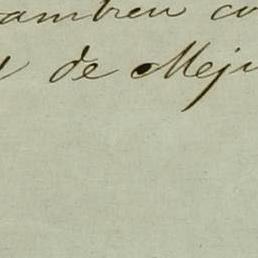 ambien co
de Meji